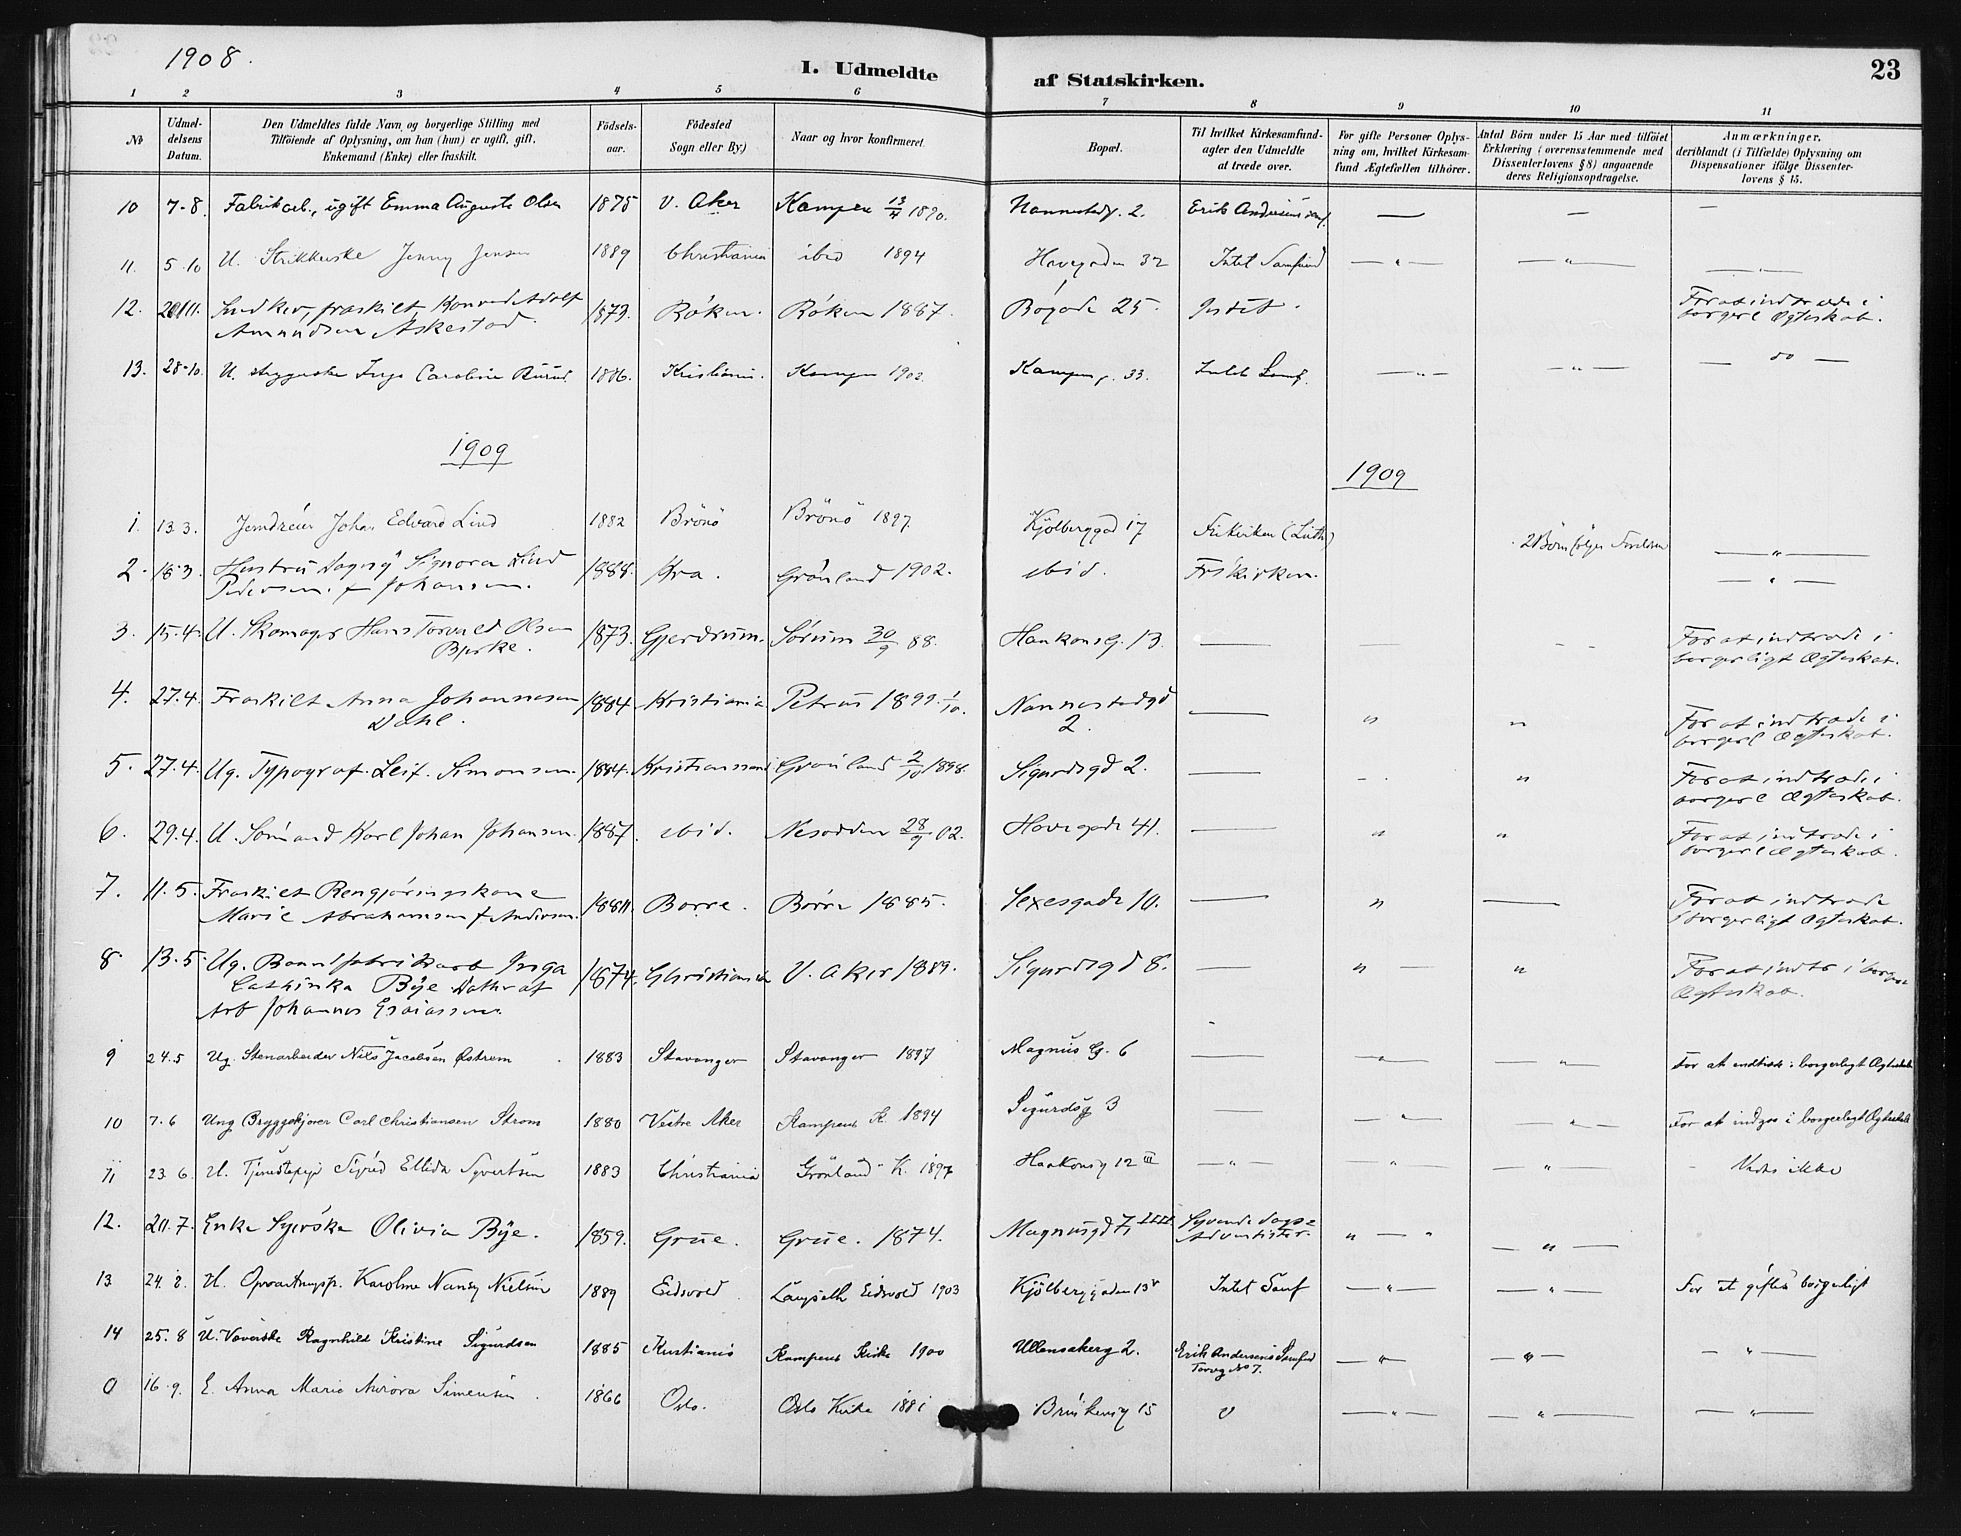 1908.
I. Udmeldte
af Statskirken.
23
1 2 3 4 5 6 7 8 9 10 11
No
Udmel-
delsens
Datum.
Den Udmeldtes fulde Navn og borgerlige Stilling med
Tilföiende af Oplysning, om han (hun) er ugift, gift,
Enkemand (Enke) eller fraskilt.
Födsels-
aar.
Födested
Sogn eller By.)
Naar og hvor konfirmeret.
Bopæl.
Til hvilket Kirkesamfund-
agter den Udmeldte
at træde over.
For gifte Personer Oplys-
ning om, hvilket Kirkesam-
fund Ægtefællen tilhörer.
Antal Börn under 15 Aar med tilföiet
Erklæring (overensstemmende med
Dissenterlovens § 8) angaaende
deres Religionsopdragelse.
Anmærkninger,
deriblandt (i Tilfælde) Oplysning om
Dispensationer ifölge Dissenter-
lovens § 15.
10 7-8. Fabrikarb., ugift Emma Auguste Olsen 1875 V. Aker Kampen 13/4 1890. Nannestadg. 2. Erik Andersens Samf. — — —
11. 5-10 U. Strikkerske Jenny Jensen 1889 Christiania ibid 1894 Havegaden 32 Intet Samfund — " — — " — — " —
12. 20/11. fraskilt, Konrad Adolf 1873. Röken. Röken 1887. Bögade 25. Intet. For at indtræde i
Amundsen Askestad. borgerl Ægteskab.
13. 28-10. U. strygerske Inga Caroline Ruud 1886. Kristiania. Kampen 1902 Kampeng. 33. Intet Samf. — " — — " — — do —
1909
1909
1. 13.3. Jerndreier Johan Edvard Lind 1882 Brönö Brönö 1897 Kjölberggad 17 Frikirken (Luth) 2 Börn fölger Forældrene — " —
2. 18.3. Hustru Dagny Signora Lind 1888. Kra. Grönland 1902. ibid. Frikirken. — " —
Pedersen. f Johansen.
3. 15.4. U. Skomager Hans Torvald Olsen 1873. Gjerdrum. Sörum 30/9 88. Haakonsg. 13. — — - - For at indtræde i
Bjerke. borgerligt Ægteskab.
4. 27.4. Fraskilt Anna Johannesen 1884. Kristiania Petrus 1899. 1/10. Nannestadgd — " " For at indtræde i
Dahl. 2. borgerl Ægteskab.
5. 27.4. Ug. Typograf Leif Simonsen. 1884. Kristianssand Grönland 2/10 1898. Sigurdsgd 2. — - . " For at indtræde i
borgerl Ægteskab.
6. 29.4. U. Sömand Karl Johan Johansen. 1887. ibid. Nesodden 28/9 02. Havegade 41. — " " For at indtræde i
borgerl Ægteskab.
7. 11.5. Fraskilt Rengjöringskone Borre. Borre 1885. Sexesgade 10. — " — For at indtræde
Marie Abrahamsen f Andersen. i borgerligt Ægteskab.
8. 13.5. Ug. Inga 1874. Christiania V. Aker 1889. Sigurdsgd 8. — " — " For at indtr i borger
Cathinka Bÿe. Datter af Ægteskab.
Arb Johannes Esaiassen.
9 24.5 Ug. Stenarbeider Nils Jacobsen Østrem 1883 Stavanger Stavanger 1897 Magnus Gg. 6 — — " — — " — For at indtræde i borgerligt Ægteskab
10 7.6 Ung Bryggekjörer Carl Christiansen Strøm 1880 Vestre Aker Kampens K. 1894 Sigurdsg 3 — — " — — " — For at indgaa i borgerligt Ægteskab
11 23.6. U. Tjenestepige Sigrid Ellida Syvertsen 1883 Christiania Grönland K. 1897 Haakonsg 12 III — " — — " — — " — Vides ikke
12. 20.7. Enke Syerske Olivia Bÿe. 1859. Grue. Grue. 1874. Magnusgd 7, IIII Syvende dags=
Adventister. " — " — " —
13 24.8. U. Karoline Nansy Nielsen 1889 Eidsvold Langseth Eidsvold 1903 Kjölberggaden 13 v Intet Samf — " — — " — For at giftes borgerligt
14 25.8 U. Væverske Ragnhild Kristine Sigurdsen 1885 Kristiania Kampens Kirke 1900 Ullensakerg 2. Erik Andersens Samfund
Torvg No 7. — " — — " — — " —
0 16.9. E. Anna Marie Aurora Simensen. 1866 Oslo. Oslo Kirke 1881 15 0 — " — — " — — " —